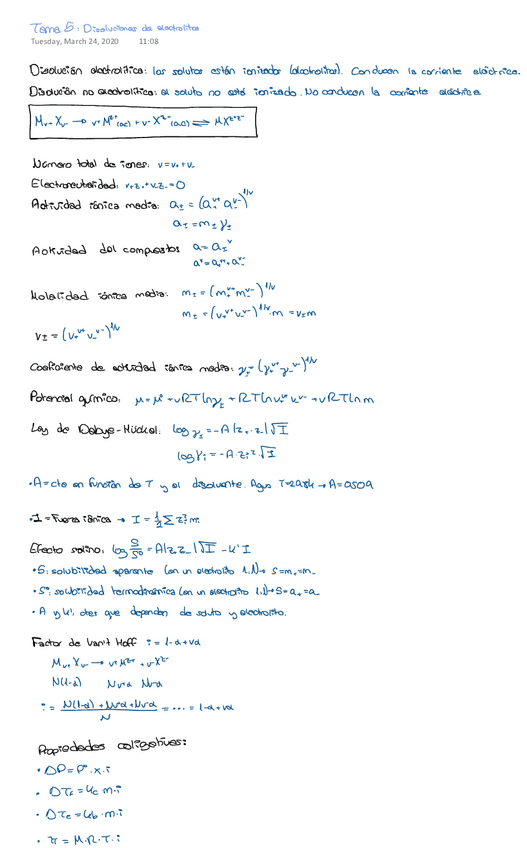 Tema 5: Disoluciones de electrolitos
Tuesday, March 24, 2020 11:08
Disolución electrolítica: los solutos están ionizados (electrolitos). Conducen la corriente eléctrica.
Disolución no electrolítica: el soluto no está ionizado. No conducen la corriente eléctrica
Mᵥ₊ Xᵥ₋ → ν₊ M^z+ (ac) + ν₋ X^z- (ac) ⇌ MX
Número total de iones: ν=ν₊+ν₋
Electroneutralidad: ν₊z₊+ν₋z₋=0
Actividad iónica media: a± = (a₊^ν+ a₋^ν-)^1/ν
a± = m± γ±
Actividad del compuesto: a = a±^ν
a^ν = a₊^ν+ · a₋^ν-
Molalidad iónica media: m± = (m₊^ν+ m₋^ν-)^1/ν
m± = (ν₊^ν+ ν₋^ν-)^1/ν · m = ν± m
ν± = (ν₊^ν+ ν₋^ν-)^1/ν
Coeficiente de actividad iónica media: γ± = (γ₊^ν+ γ₋^ν-)^1/ν
Potencial químico: μ = μ° + νRT ln γ± + RT ln ν₊^ν+ ν₋^ν- + νRT ln m
Ley de Debye-Hückel: log γ± = -A |z₊·z₋| √I
log γi = -A·zi² √I
·A = cte en función de T y el disolvente. Agua T=298K → A=0,509
·I = Fuerza iónica → I = ½ Σ zi² mi
Efecto salino: log S/S° = A|z₊z₋| √I - K' I
·S: solubilidad aparente (en un electrolito 1:1) → S=m₊=m₋
·S°: solubilidad termodinámica (en un electrolito 1:1) → S=a₊=a₋
·A y K', ctes que dependen de soluto y electrolito.
Factor de Van't Hoff i = 1-α+να
Mᵥ₊ Xᵥ₋ → ν₊ M^z+ + ν₋ X^z-
N(1-α) Nν₊α Nν₋α
i = N(1-α) + Nν₊α + Nν₋α / N = ... = 1-α+να
Propiedades coligativas:
· ΔP = P°·x·i
· ΔTf = Kc·m·i
· ΔTe = Kb·m·i
· π = M·R·T·i